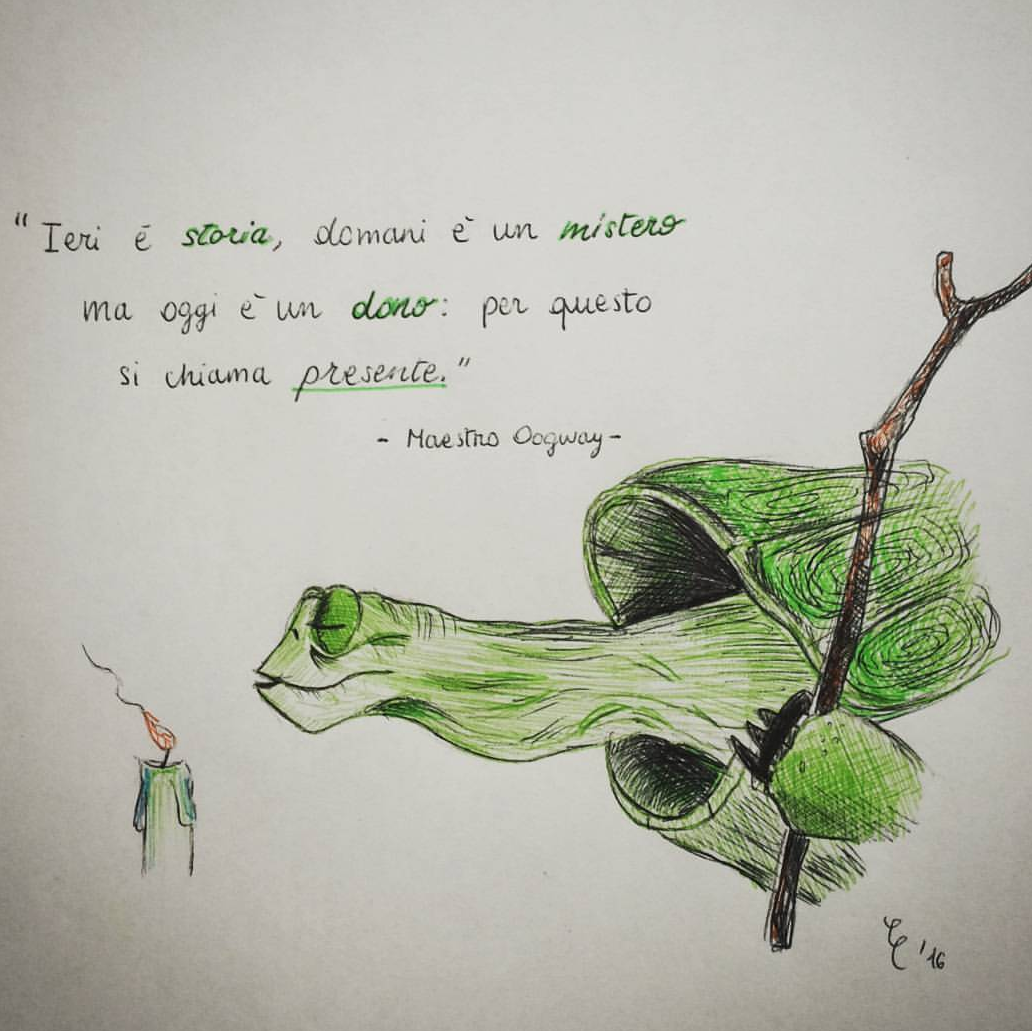 "Ieri é storia, domani è un mistero
ma oggi è un dono: per questo
si chiama presente."
- Maestro Oogway-
'16